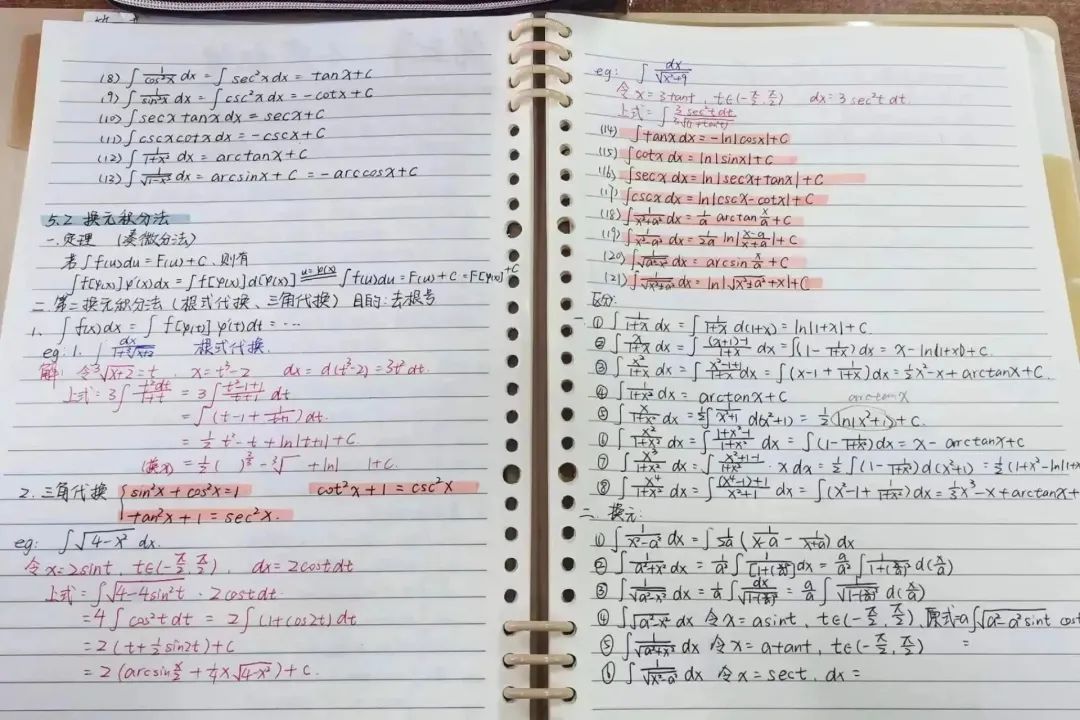 (8) ∫ 1/cos²x dx = ∫ sec²x dx = tanx + C
(9) ∫ 1/sin²x dx = ∫ csc²x dx = -cotx + C
(10) ∫ secx tanx dx = secx + C
(11) ∫ cscx cotx dx = -cscx + C
(12) ∫ 1/(1+x²) dx = arctanx + C
(13) ∫ 1/√(1-x²) dx = arcsinx + C = -arccosx + C
5.2 换元积分法
一. 定理 (凑微分法)
若 ∫ f(u)du = F(u) + C, 则有
∫ f[φ(x)] φ'(x)dx = ∫ f[φ(x)] d[φ(x)] u=φ(x) ∫ f(u)du = F(u) + C = F[φ(x)] + C
二. 第二换元积分法 (根式代换、三角代换) 目的: 去根号
1. ∫ f(x)dx = ∫ f[φ(t)] φ'(t)dt = ...
eg: 1. ∫ dx/(1+³√(x+2)) 根式代换.
解: 令 ³√(x+2) = t, x = t³-2 dx = d(t³-2) = 3t² dt.
上式 = 3∫ t²dt/(1+t) = 3∫ (t²-1+1)/(t+1) dt
= ∫ (t-1+ 1/(t+1)) dt.
= ½ t² - t + ln|t+1| + C.
(换x) = ½ ( )^(2/3) - ³√ + ln| 1 + C.
2. 三角代换 { sin²x + cos²x = 1 cot²x + 1 = csc²x
tan²x + 1 = sec²x.
eg: ∫ √(4-x²) dx.
令 x = 2sint, t∈(-π/2, π/2). dx = 2costdt
上式 = ∫ √(4-4sin²t) · 2costdt.
= 4∫ cos²t dt = 2∫ (1+cos2t) dt
= 2(t + ½ sin2t) + C
= 2(arcsin x/2 + ¼ x √(4-x²)) + C.
eg: ∫ dx/√(x²+9)
令 x = 3tant, t∈(-π/2, π/2) dx = 3sec²t dt.
上式 = ∫ 3sec²t dt/
(14) ∫ tanx dx = -ln|cosx| + C
(15) ∫ cotx dx = ln|sinx| + C
(16) ∫ secx dx = ln|secx+tanx| + C
(17) ∫ cscx dx = ln|cscx-cotx| + C
(18) ∫ 1/(x²+a²) dx = 1/a arctan x/a + C
(19) ∫ 1/(x²-a²) dx = 1/2a ln|(x-a)/(x+a)| + C
(20) ∫ 1/√(a²-x²) dx = arcsin x/a + C
(21) ∫ 1/√(x²+a²) dx = ln|√(x²+a²)+x| + C
区分:
一. ① ∫ 1/(1+x) dx = ∫ 1/(1+x) d(1+x) = ln|1+x| + C.
② ∫ x/(1+x) dx = ∫ ((x+1)-1)/(1+x) dx = ∫(1 - 1/(1+x)) dx = x - ln|1+x| + C.
③ ∫ x²/(1+x) dx = ∫ (x²-1+1)/(1+x) dx = ∫(x-1+ 1/(1+x)) dx = ½x² - x + arctanx + C.
④ ∫ 1/(1+x²) dx = arctanx + C arctanx
⑤ ∫ x/(1+x²) dx = ½∫ 1/(x²+1) d(x²+1) = ½ (ln|x²+1|) + C.
⑥ ∫ x²/(1+x²) dx = ∫ (1+x²-1)/(1+x²) dx = ∫(1 - 1/(1+x²)) dx = x - arctanx + C
⑦ ∫ x³/(1+x²) dx = ∫ (x²+1-1)/(1+x²) · x dx = ½∫(1 - 1/(1+x²)) d(x²+1) = ½(1+x² - ln|1+
⑧ ∫ x⁴/(1+x²) dx = ∫ ((x⁴-1)+1)/(x²+1) dx = ∫(x²-1+ 1/(1+x²)) dx = ⅓x³ - x + arctanx +
二. 换元:
① ∫ 1/(x²-a²) dx = ∫ 1/2a (1/(x-a) - 1/(x+a)) dx
② ∫ 1/(a²+x²) dx = 1/a² ∫ 1/[1+(x/a)²] dx = a/a² ∫ 1/(1+(x/a)²) d(x/a)
③ ∫ 1/√(a²-x²) dx = 1/a ∫ dx/√(1-(x/a)²) = a/a ∫ 1/√(1-(x/a)²) d(x/a)
④ ∫ √(a²-x²) dx 令 x = asint, t∈(-π/2, π/2), 原式=a∫ √(a²-a²sint cost
⑤ ∫ 1/√(a²+x²) dx 令 x = atant, t∈(-π/2, π/2) =
⑥ ∫ 1/√(x²-a²) dx 令 x = sect, dx =